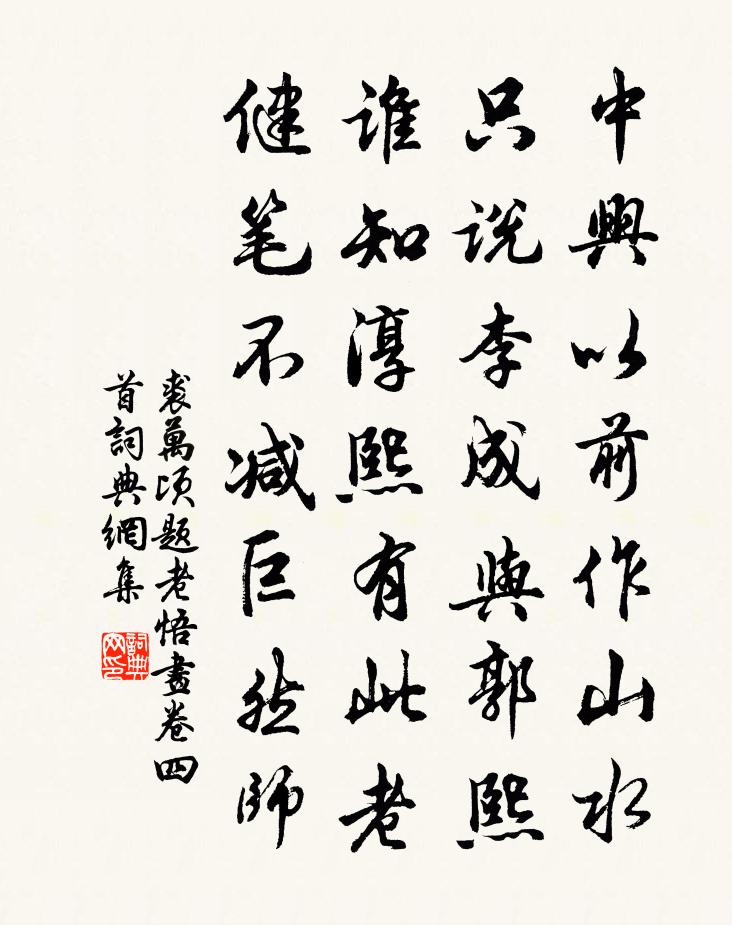 中興以前作山水
只说李成與郭熙
谁知淳熙有此老
健笔不减巨然師
裘萬顷题老悟畫卷四
首詞典網集
詞典
网印